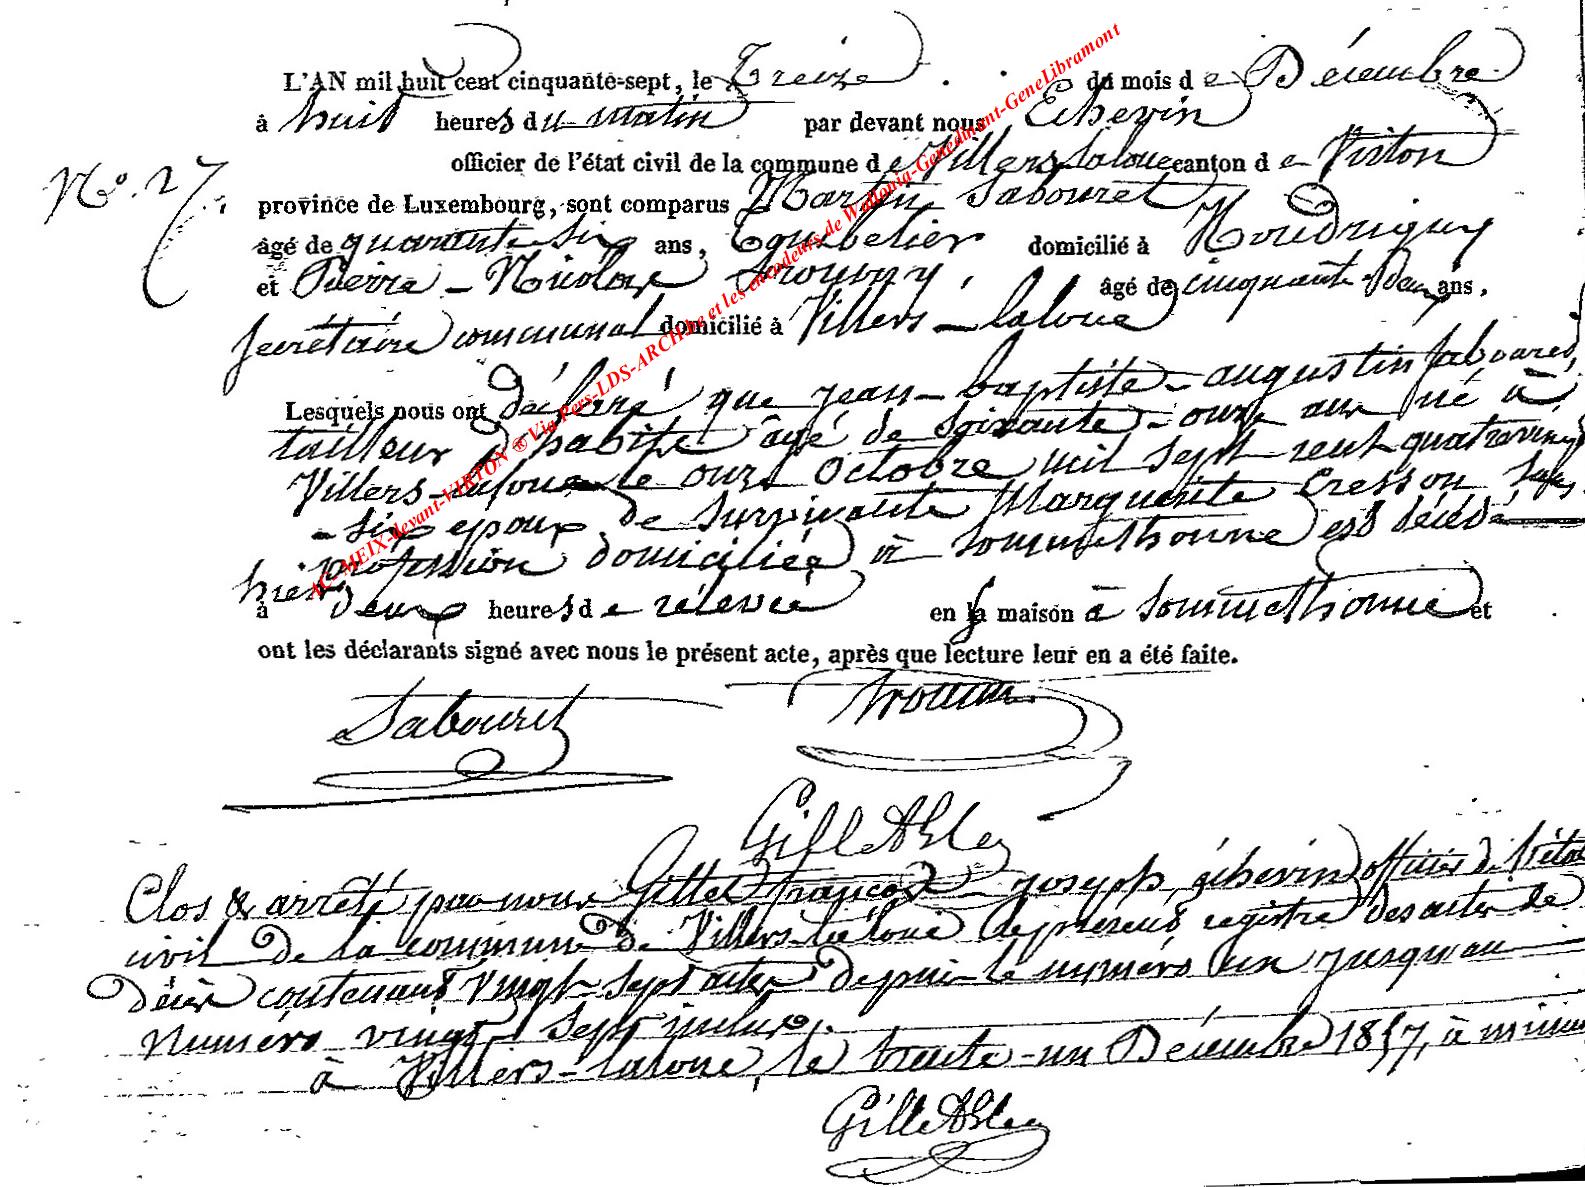 L'AN mil huit cent cinquante-sept, le Treize du mois de Décembre
à huit heures du matin par devant nous Echevin
officier de l'état civil de la commune de Villers-laloue canton de Virton
No. 27.
province de Luxembourg, sont comparus Martin Sabouret
âgé de quarante six ans, domicilié à Houdrigny
et Pierre - Nicolas âgé de cinquante-deux ans,
secrétaire communal domicilié à Villers-laloue
Lesquels nous ont déclaré que jean-baptiste-augustin Sabouret,
tailleur d'habits âgé de soixante-onze ans né à
Villers-laloue le onze Octobre mil sept cent quatrevingt
-six epoux de survivante Marguerite Cresson sans
profession domiciliée à Sommethonne est décédé
hier
à deux heures de rélevée en sa maison à Sommethonne et
ont les déclarants signé avec nous le présent acte, après que lecture leur en a été faite.
Sabouret
Clos & arrêté par nous Gillet françois-joseph, échevin officier de l'état
civil de la commune de Villers-laloue le présent registre des actes de
décès contenant vingt-sept actes depuis le numéro un jusqu'au
Numéro vingt sept inclus.
à Villers-laloue, le trente-un Décembre 1857, à minuit
AC-MEIX-devant-VIRTON ® Via Pers-LDS-ARCH.be et les encodeurs de Wallonia-Genedinant-GeneLibramont